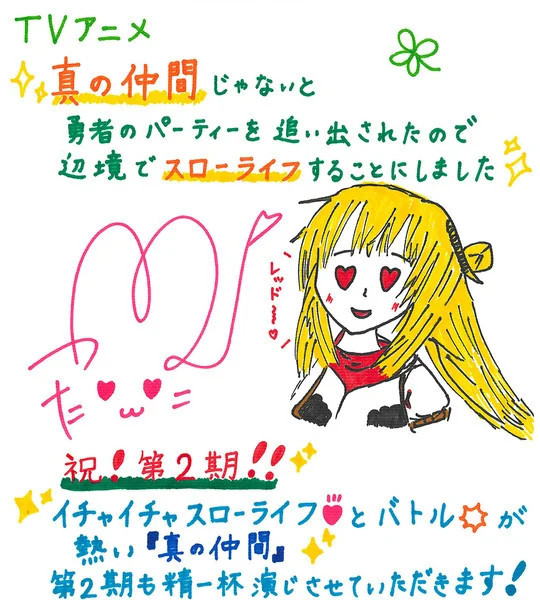 TVアニメ
真の仲間じゃないと
勇者のパーティーを追い出されたので
辺境でスローライフすることにしました
レッド〜♥
祝!第2期!!
イチャイチャスローライフ♥とバトルが
熱い『真の仲間』
第2期も精一杯演じさせていただきます!